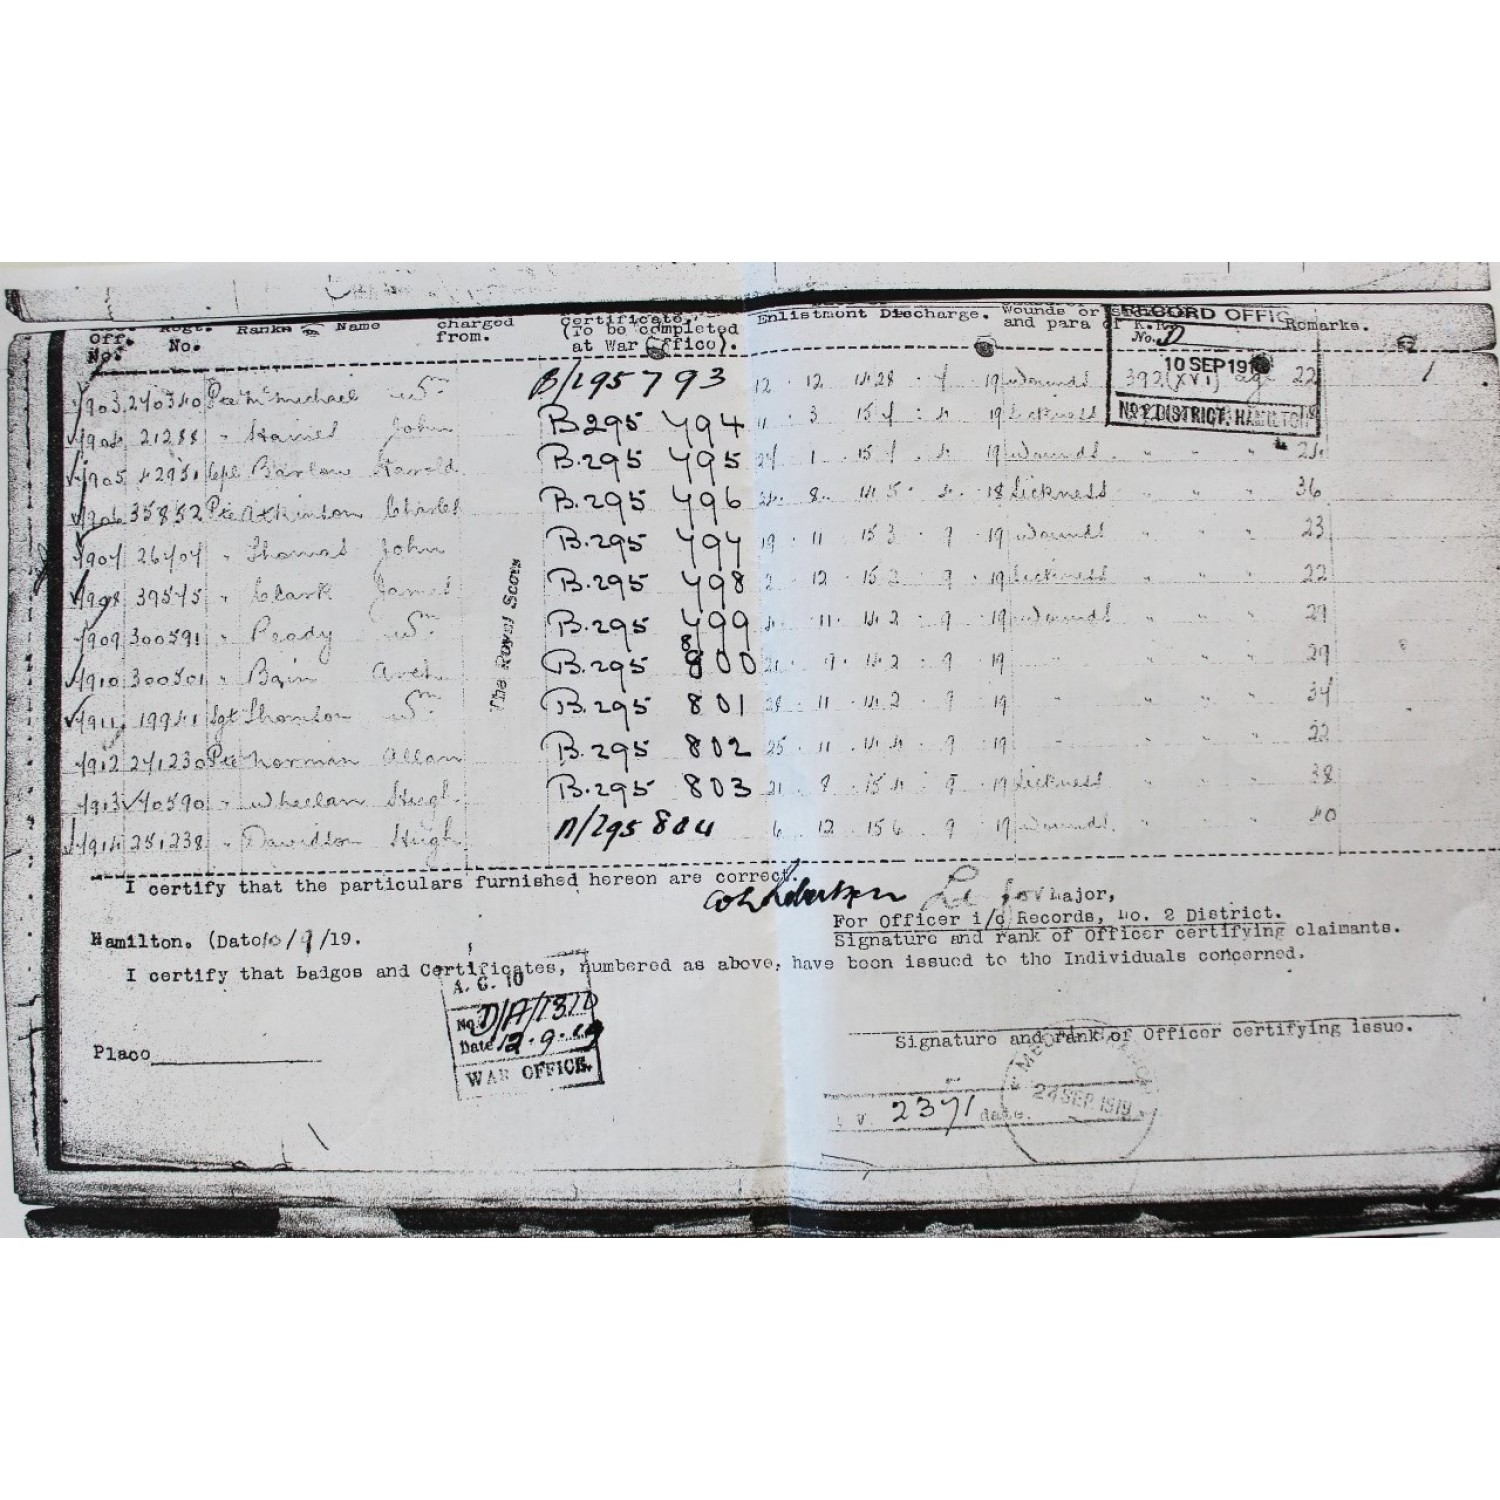 Off. Regt. Rank Name charged Certificate. Enlistment Discharge. Wounds or RECORD OFFICE Remarks.
No. No. from. (To be completed and para of K.R. No.
at War Office). 10 SEP 191
No 2 DISTRICT. HAMILTON
7903 240340 Pte McMichael Wm B/295793 12 . 12 . 14 28 . 7 . 19 Wounds 392(XVI) age 22
21288 " Haines John B295 794 11 . 3 . 15 19 Sickness
7905 Cpl Barlow Harold B.295 795 1 . 15 19 Wounds " " "
7906 35852 Pte Atkinson Charles B.295 796 8 . 14 5 18 Sickness " " " 36
7907 26707 " Thomas John B.295 797 19 . 11 . 15 3 . 9 . 19 Wounds " " " 23
7908 39575 " Clark James B.295 798 2 . 12 . 15 2 . 9 . 19 Sickness " " " 22
7909 300591 " Peady Wm B.295 799 11 . 14 2 . 9 . 19 Wounds " " " 29
7910 300501 " Bain Arch. B.295 800 21 . 9 . 14 2 . 9 . 19 " " " " 29
7911 19941 Sgt Thomson Wm B.295 801 28 . 11 . 14 2 . 9 . 19 " " " " 34
7912 241230 Pte Norman Allan B.295 802 25 . 11 . 14 4 . 9 . 19 " " " " 22
7913 40590 " Whelan Hugh B.295 803 21 . 8 . 15 4 . 9 . 19 Sickness " " " 38
7914 251238 " Davidson Hugh B/295804 6 . 12 . 15 6 . 9 . 19 Wounds. " " " 40
The Royal Scots
I certify that the particulars furnished hereon are correct.
Lt for Major,
For Officer i/c Records, No. 2 District.
Hamilton. (Date 10/9/19. Signature and rank of Officer certifying claimants.
I certify that Badges and Certificates, numbered as above, have been issued to the Individuals concerned.
A. G. 10
No D/A/1310
Date 12.9.19
WAR OFFICE.
Place
Signature and rank of Officer certifying issue.
V. 2371 date.
24 SEP. 1919